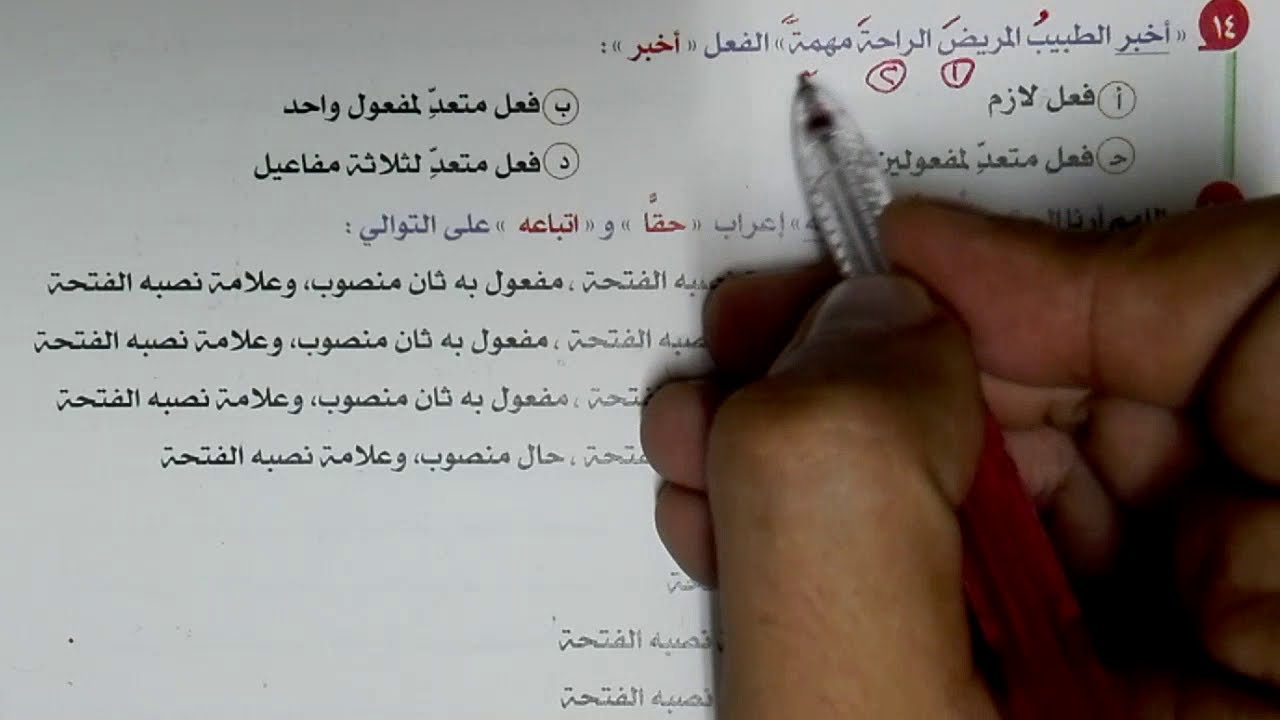 ١٤ « أخبر الطبيبُ المريضَ الراحةَ مهمةً » الفعل « أخبر » :
١ ٢
أ فعل لازم ب فعل متعدٍّ لمفعول واحد
حـ فعل متعدٍّ لمفعولين د فعل متعدٍّ لثلاثة مفاعيل
اللهم أرنا » إعراب « حقًّا » و « اتباعه » على التوالي :
نصبه الفتحة ، مفعول به ثان منصوب، وعلامة نصبه الفتحة
نصبه الفتحة ، مفعول به ثان منصوب، وعلامة نصبه الفتحة
الفتحة ، مفعول به ثان منصوب، وعلامة نصبه الفتحة
الفتحة ، حال منصوب، وعلامة نصبه الفتحة
نصبه الفتحة
نصبه الفتحة